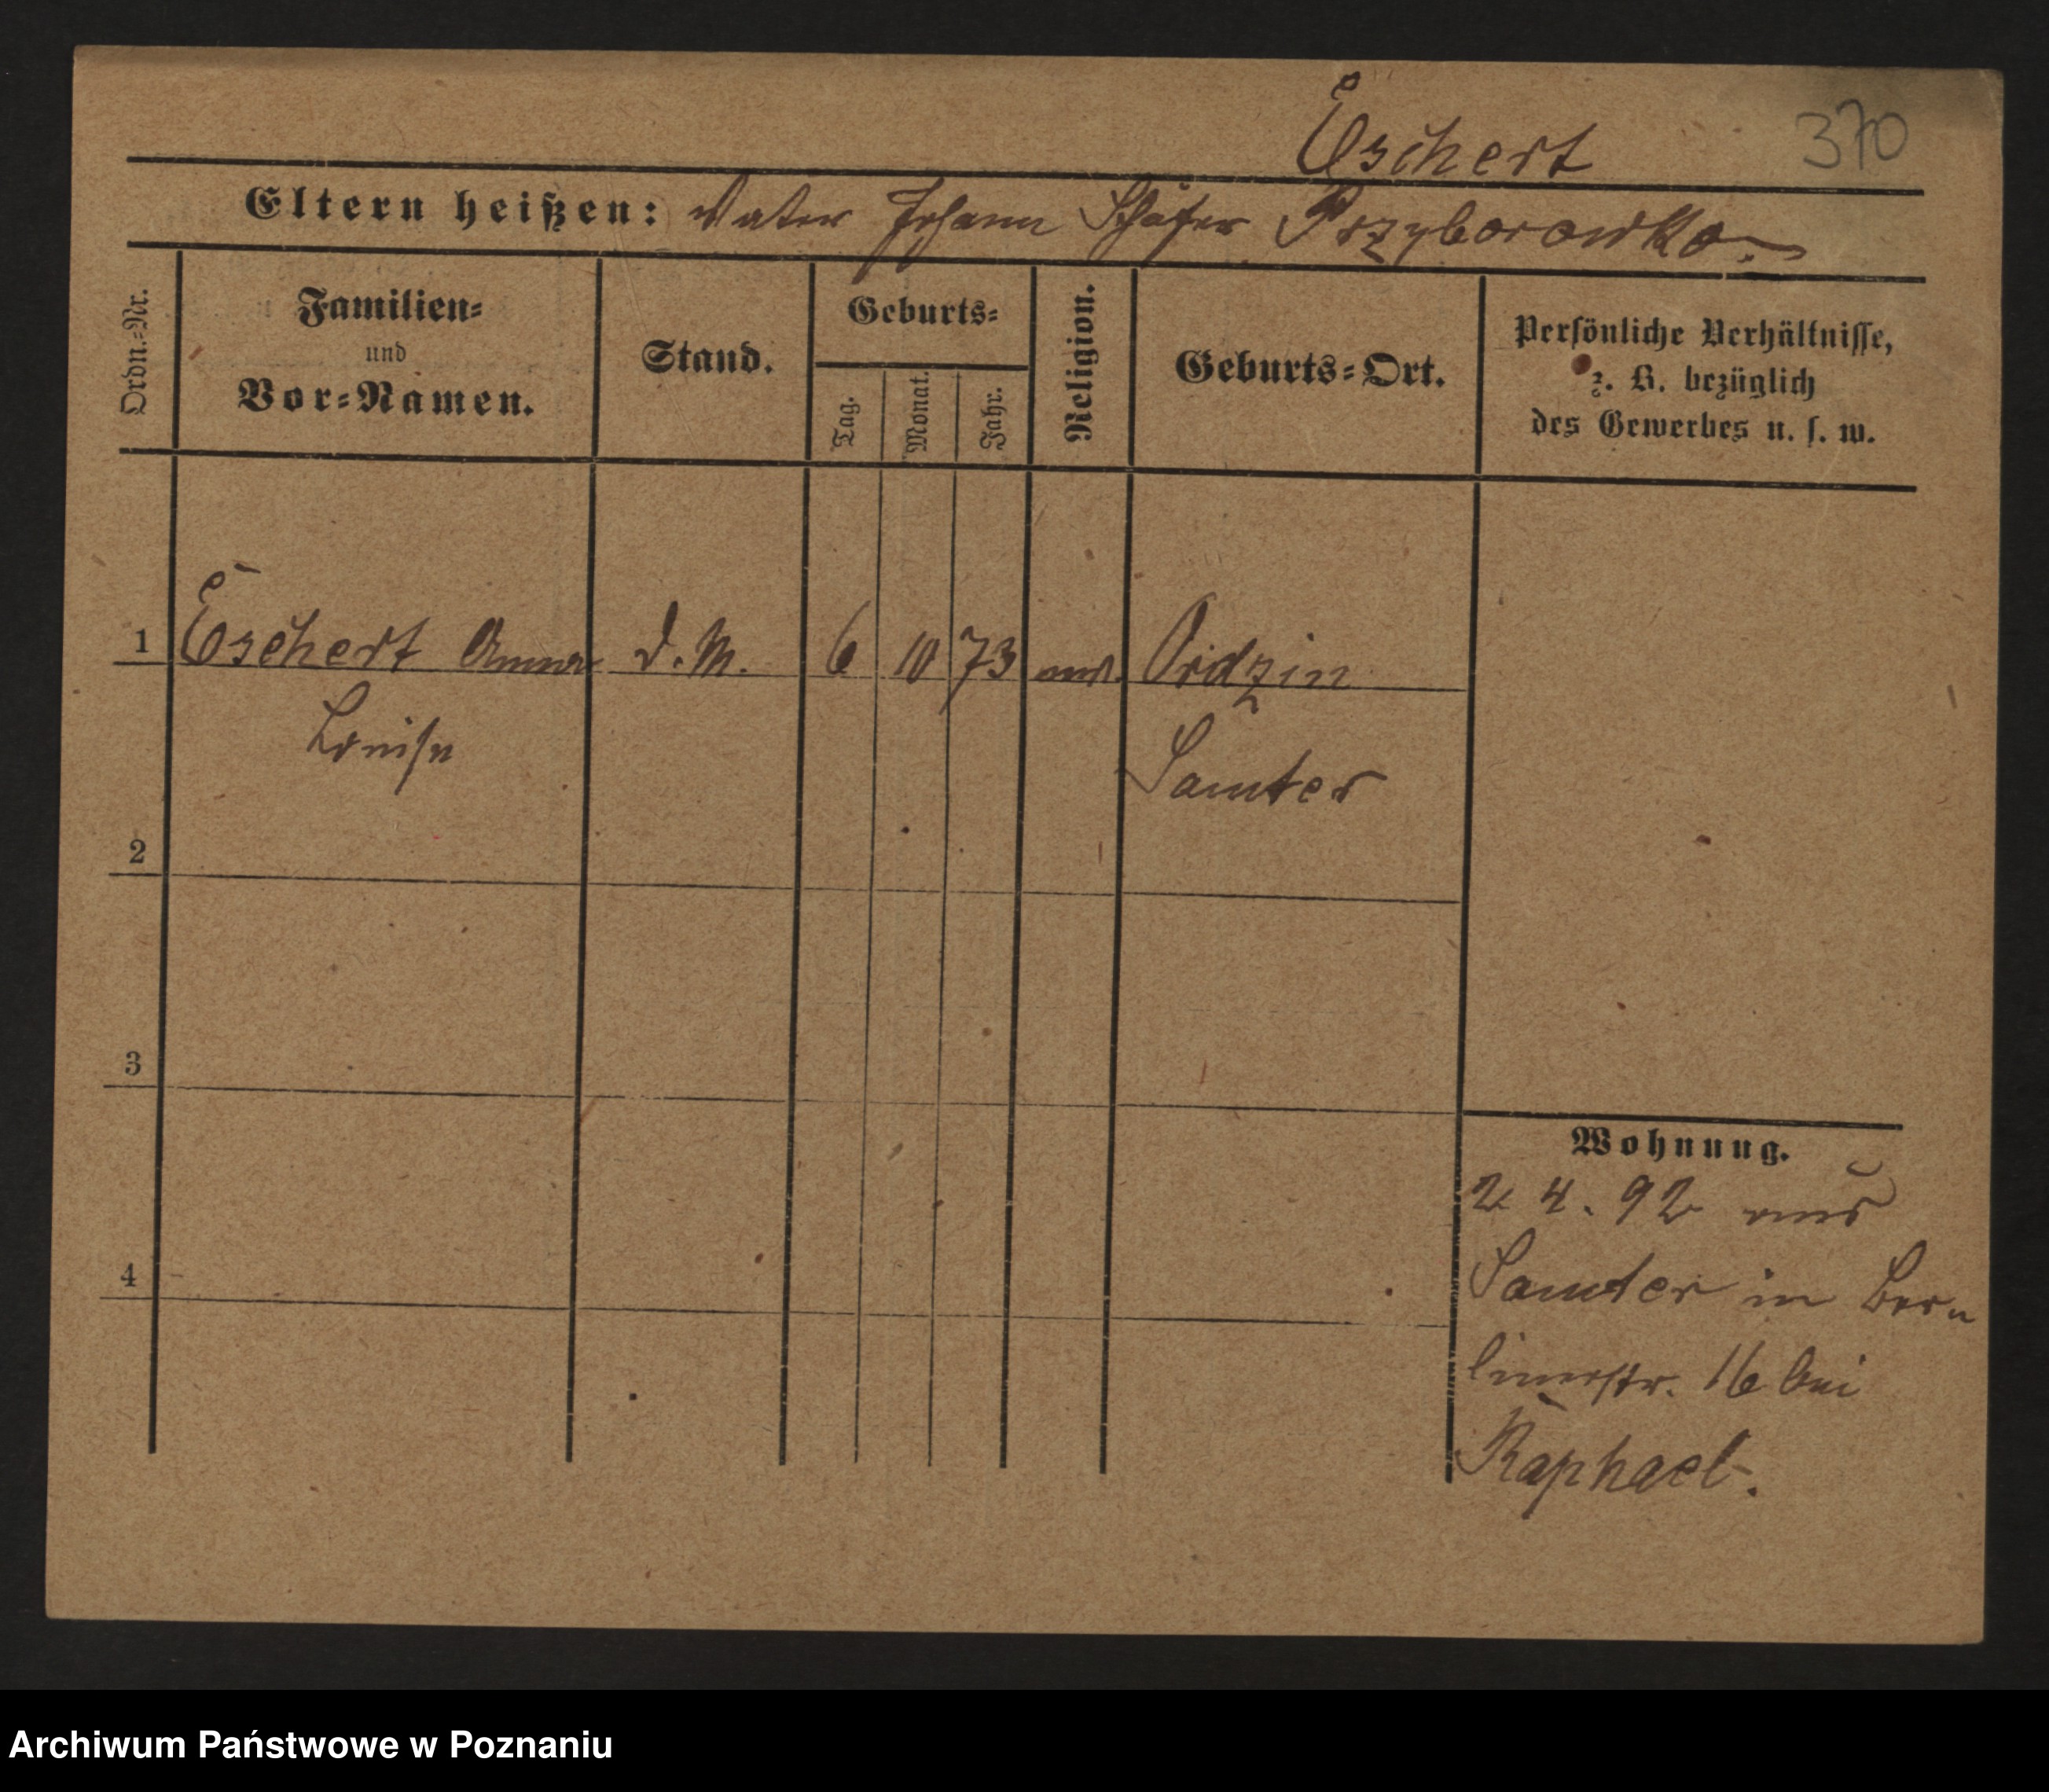 Eschert 370
Eltern heißen: Vater Johann Schäfer Przyborowko.
Ordn.-Nr.
Familien-
und
Vor-Namen.
Stand.
Geburts-
Tag.
Monat.
Jahr.
Religion.
Geburts-Ort.
Persönliche Verhältnisse,
z. B. bezüglich
des Gewerbes u. s. w.
1 Eschert Anna d. M. 6 10 73 ev. Ordzin
Louise Samter
2
3
4
Wohnung.
2 4. 92 aus
Samter in Ber-
linerstr. 16 bei
Raphael.
Archiwum Państwowe w Poznaniu